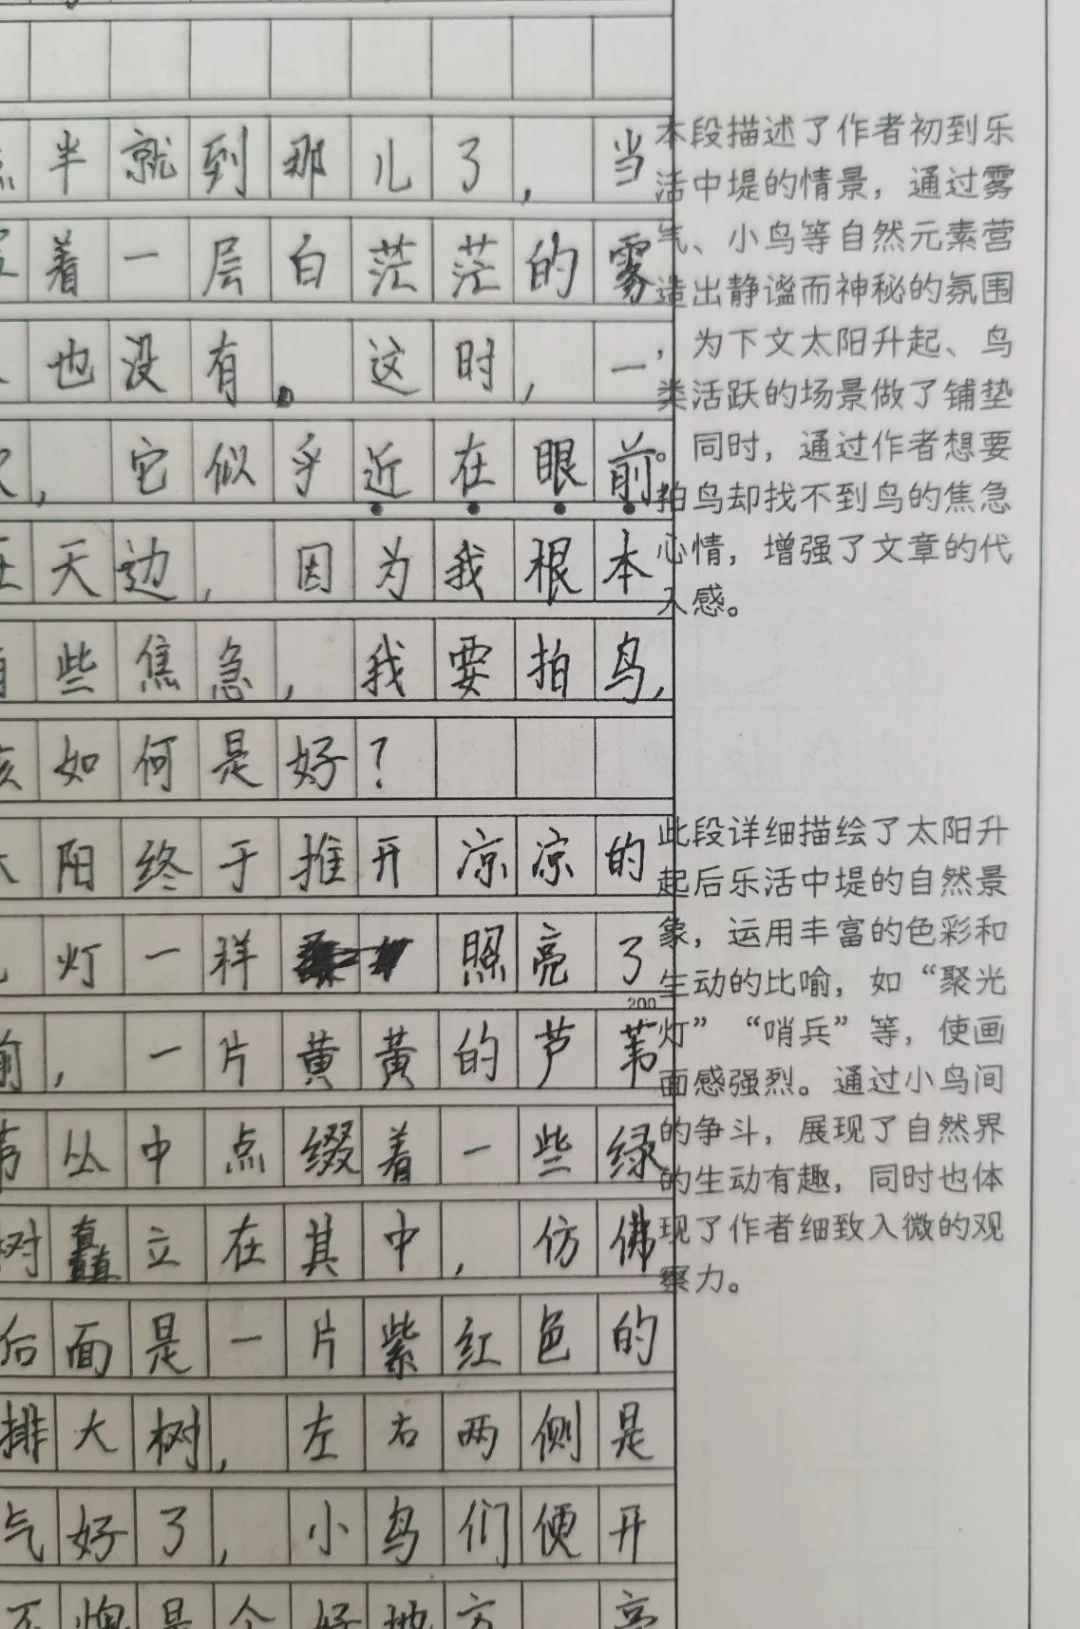 半就到那儿了，当
着一层白茫茫的雾
也没有。这时，一
，它似乎近在眼前
天边，因为我根本
些焦急，我要拍鸟，
如何是好？
阳终于推开凉凉的
灯一样照亮了
200
，一片黄黄的芦苇
丛中点缀着一些绿
树矗立在其中，仿佛
后面是一片紫红色的
排大树，左右两侧是
气好了，小鸟们便开
不愧是个好地方
本段描述了作者初到乐
活中堤的情景，通过雾
气、小鸟等自然元素营
造出静谧而神秘的氛围
，为下文太阳升起、鸟
类活跃的场景做了铺垫
。同时，通过作者想要
拍鸟却找不到鸟的焦急
心情，增强了文章的代
入感。
此段详细描绘了太阳升
起后乐活中堤的自然景
象，运用丰富的色彩和
生动的比喻，如“聚光
灯”“哨兵”等，使画
面感强烈。通过小鸟间
的争斗，展现了自然界
的生动有趣，同时也体
现了作者细致入微的观
察力。